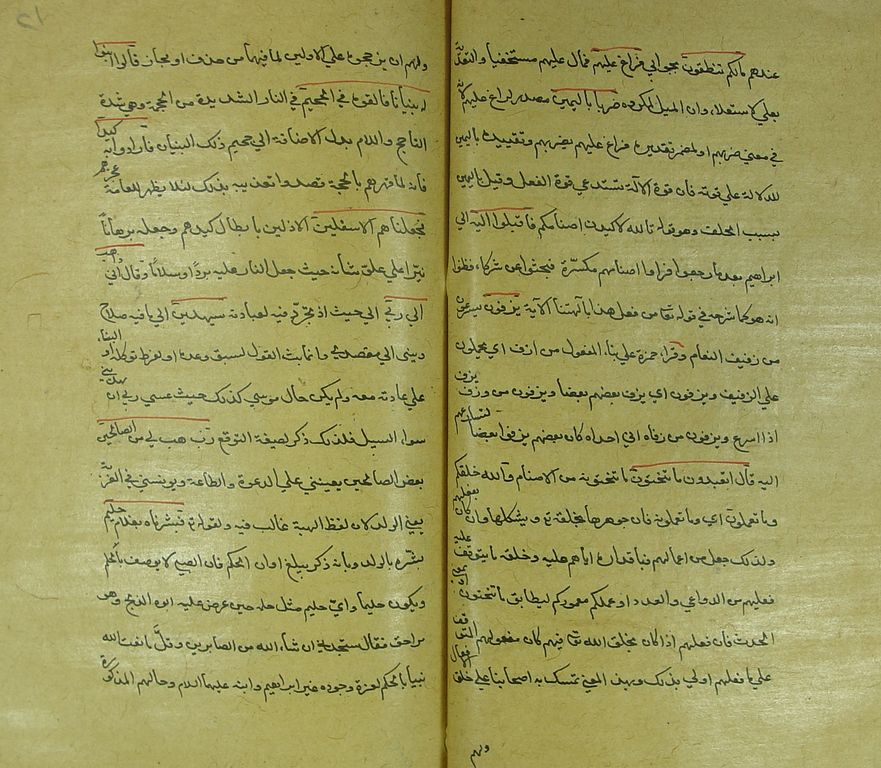 عندهم مالكم لا تنطقون بجوابي فراغ عليهم فمال عليهم مستخفيا والتعدية
بعلى للاستعلاء وان الميل لمكروه ضربا باليمين مصدر لراغ عليهم لانه
في معنى ضربهم او لمضمر تقديره فراغ عليهم يضربهم وتقييده باليمين
للدلالة على قوته فان قوة الالة تستدعي قوة الفعل وقيل باليمين
بسبب الحلف وهو قوله تالله لاكيدن اصنامكم فاقبلوا اليه الى
ابراهيم بعد ما رجعوا فراوا اصنامهم مكسرة فبحثوا عن شركاء فظنوا
انه هو كما شرحه في قوله تعا من فعل هذا بآلهتنا الآية يزفون يسرعون
من زفيف النعام وقرا حمزة على بناء المفعول من ازف اي يحملون
على الزفيف ويزفون اي يزف بعضهم بعضا ويزفون من وزف يزف
اذا اسرع ويزفون من زفاه اذا حداه كان بعضهم يزفوا بعضا لتسارعهم
اليه قال اتعبدون ما تنحتون ما تنحتونه من الاصنام والله خلقكم
وما تعملون اي وما تعملونه فان جوهرها بخلقه وشكلها وان كان بفعلهم
ولذلك جعل من اعمالهم فباقداره اياهم عليه وخلقه ما يتوقف عليه
فعلهم من الدواعي والعدد او عملكم بمعنى معمولكم ليطابق ما تنحتون او
الحدث فان فعلهم اذا كان بخلق الله تعا فيهم كان مفعولهم المتوقف
على فعلهم اولى بذلك وبهذا المعنى تمسك به اصحابنا على خلق الافعال
ولهم
ولهم ان يرجحوه على الاولين لما فيهما من حذف او مجاز قالوا ابنوا
له بنيانا فالقوه في الجحيم في النار الشديدة من الجحمة وهي شدة
التاجج واللام بدل الاضافة الى جحيم ذلك البنيان فارادوا به كيدا
فانه لما قهرهم بالحجة قصدوا تعذيبه بذلك لئلا يظهر للعامة عجزهم
فجعلناهم الاسفلين الاذلين بابطال كيدهم وجعله برهانا
نيرا على علو شانه حيث جعل النار عليه بردا وسلاما وقال اني ذاهب
الى ربي الى حيث اتجرد فيه لعبادته سيهدين الى ما فيه صلاح
ديني الى مقصدي وانما بت القول لسبق وعده او لفرط توكله او البناء
على عادته معه ولم يكن حال موسى كذلك حيث عسى ربي ان يهديني
سواء السبيل فلذلك ذكر لصيغة التوقع رب هب لي من الصالحين
بعض الصالحين يعينني على الدعوة والطاعة ويونسني في الغربة
يعني الولد لان لفظ الهبة غالب فيه ولقوله فبشرناه بغلام حليم
بشره بالولد وبانه ذكر يبلغ اوان الحكم فان الصبي لا يوصف بالحلم
ويكون حليما واي حليم مثل حلمه حين عرض عليه ابوه الذبح وهو
مراهق فقال ستجدني ان شاء الله من الصابرين وقل ما نعت الله
نبيا بالحكم لعزة وجوده غير ابراهيم وابنه عليهما السلام وحالهم المذكورة